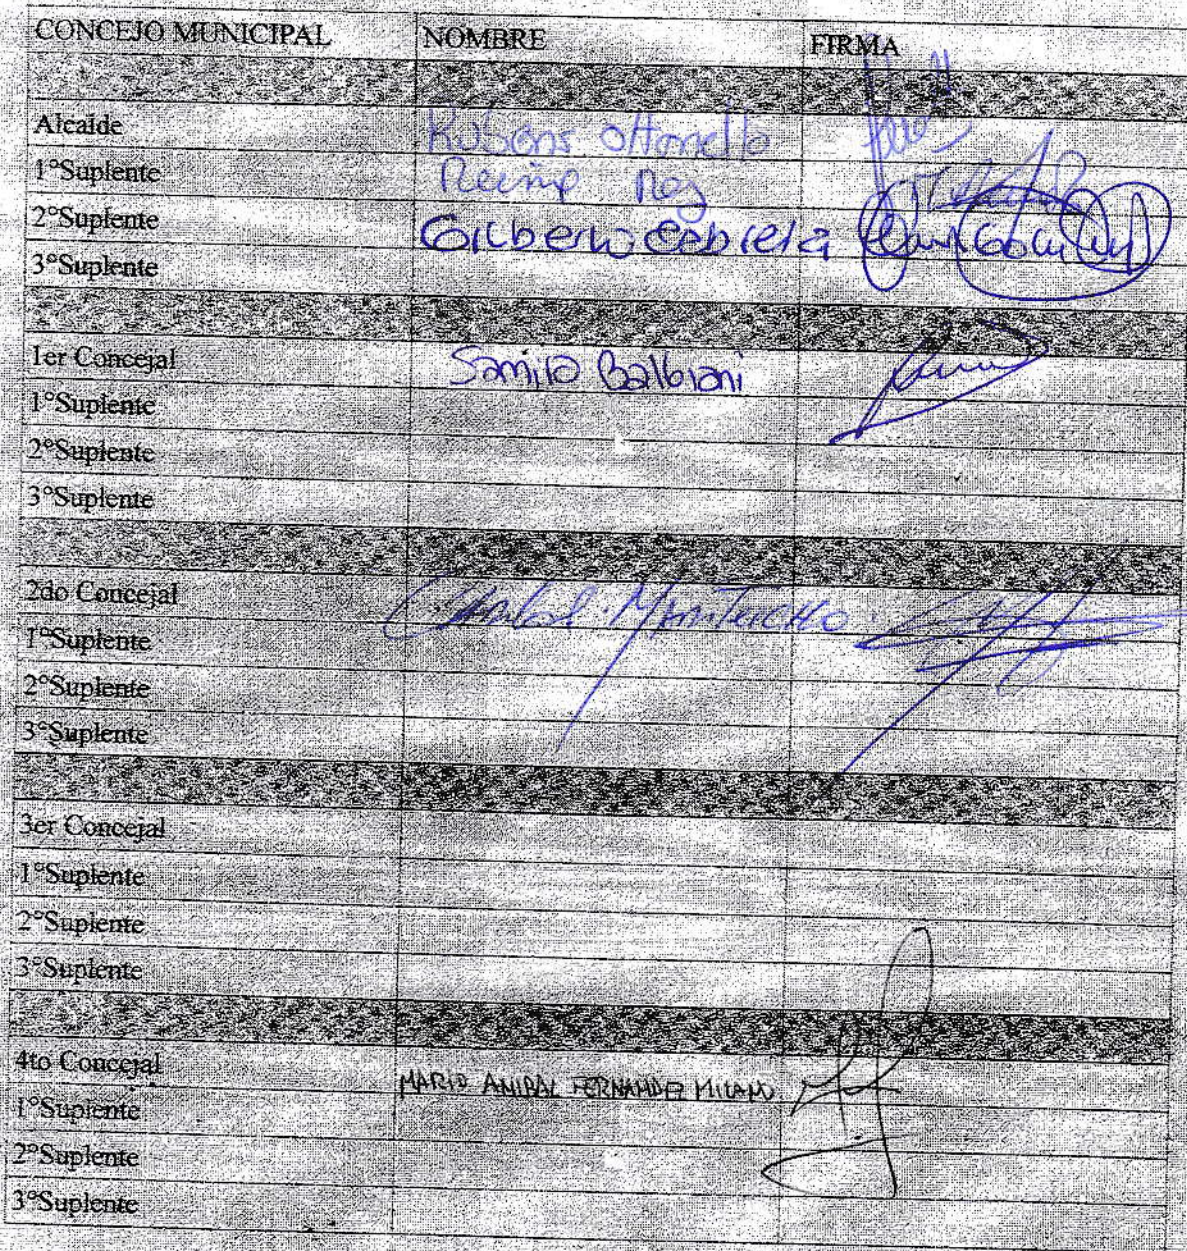 CONCEJO MUNICIPAL NOMBRE FIRMA
Alcalde Rubens Ottonello
1°Suplente
2°Suplente Gilberto
3°Suplente
1er Concejal Balbiani
1°Suplente
2°Suplente
3°Suplente
2do Concejal
1°Suplente
2°Suplente
3°Suplente
3er Concejal
1°Suplente
2°Suplente
3°Suplente
4to Concejal MARIO ANIBAL FERNANDEZ MILANO
1°Suplente
2°Suplente
3°Suplente